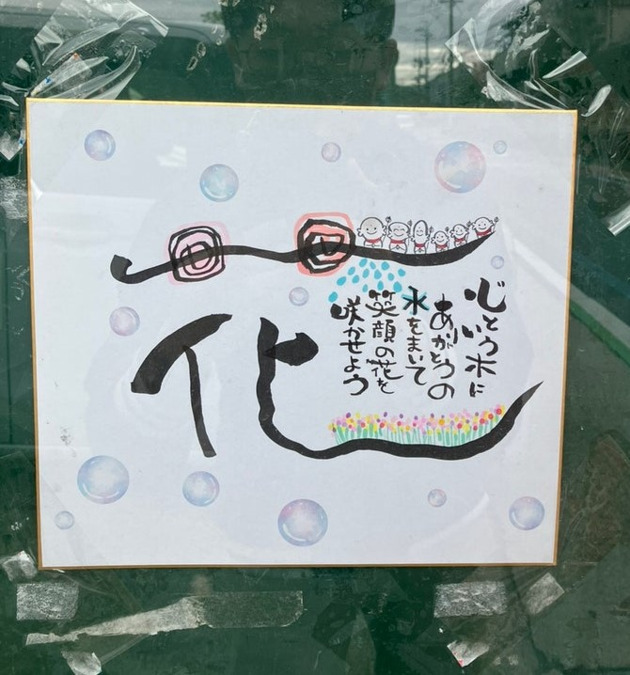 花
心という木に
ありがとうの
水をまいて
笑顔の花を
咲かせよう